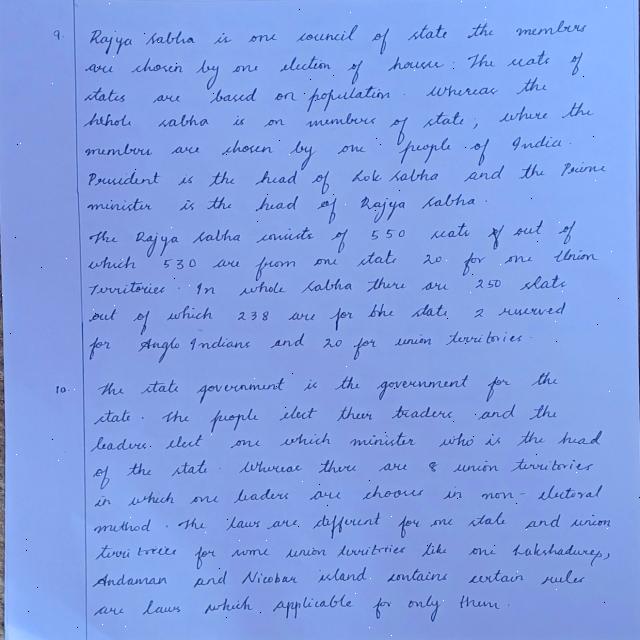 9. Rajya sabha is one council of state the members
are chosen by one election of houses. The seats of
states are based on population. whereas the
whole sabha is on members of state, where the
members are chosen by one people of India.
President is the head of Lok sabha and the Prime
minister is the head of Rajya sabha.
The Rajya sabha consists of 550 seats of out of
which 530 are from one state 20 for one Union
Territories. In whole sabha there are 250 seats
out of which 238 are for the state 2 reserved
for Anglo Indians and 20 for union territories.
10. The state government is the government for the
state. The people elect their leaders and the
leaders elect one which minister who is the head
of the state. Whereas there are 8 union territories
in which one leaders are chooses in non-electoral
method. The laws are different for one state and union
territories for some union territories like one Lakshadweep,
Andaman and Nicobar island contains certain rules
are laws which applicable for only them.